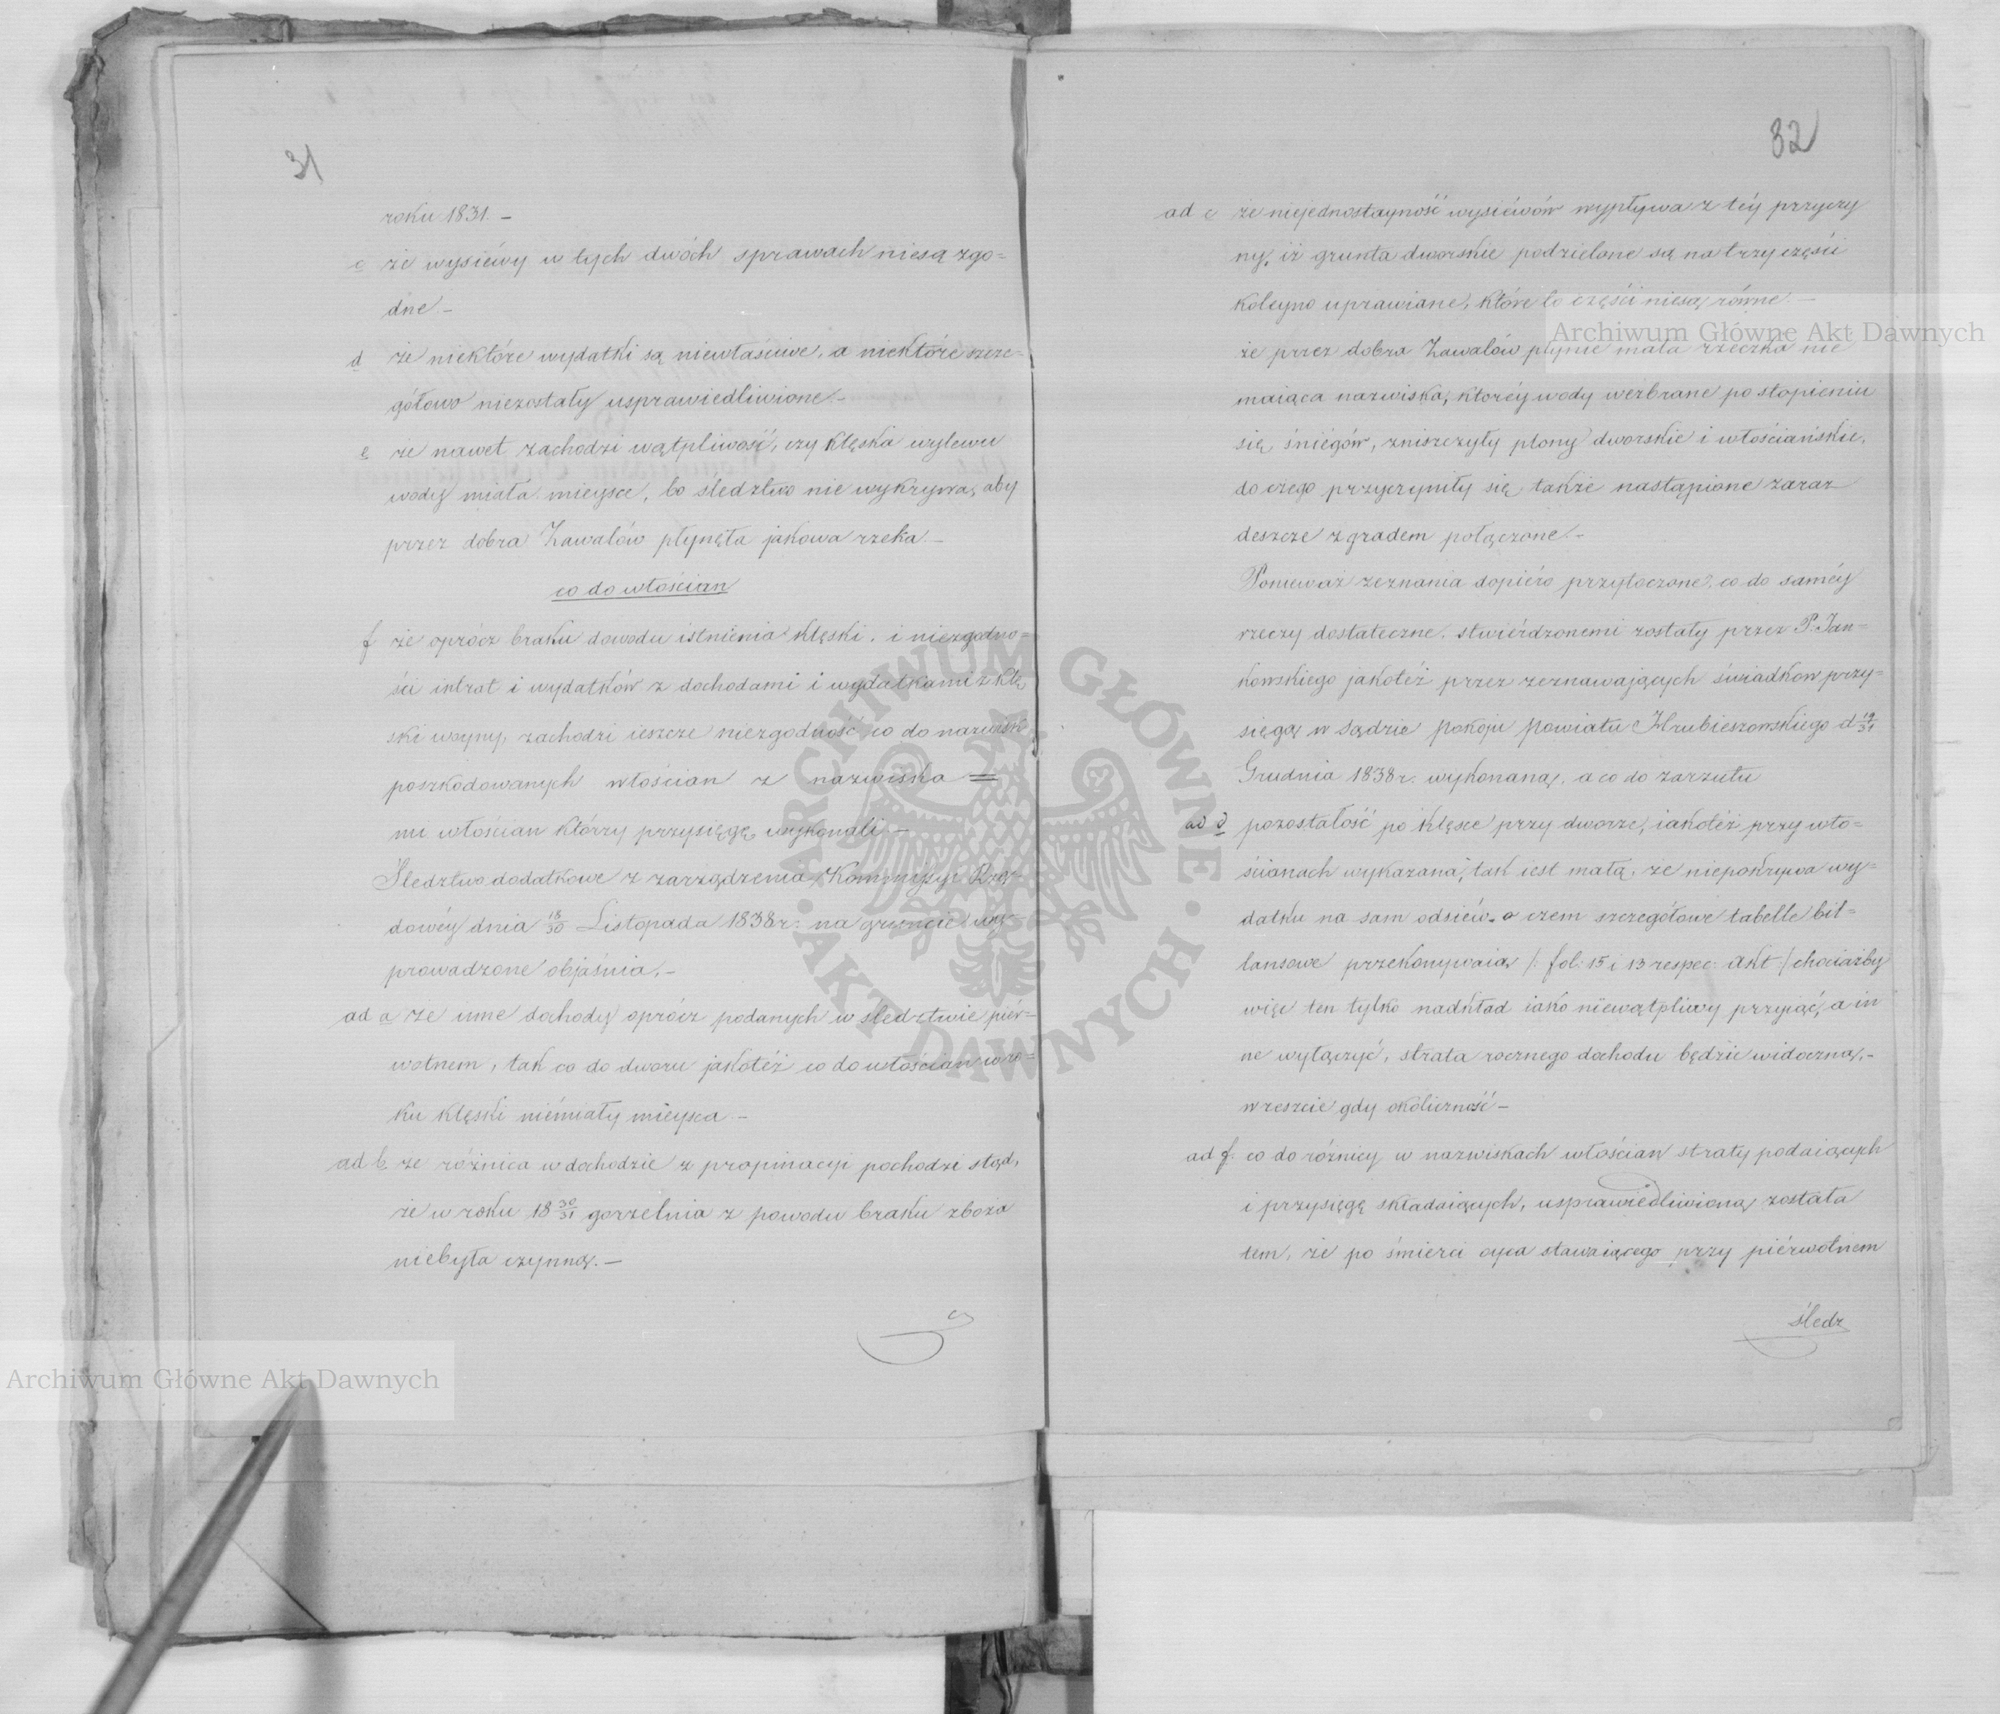 31
roku 1831. –
c że wysiéwy w tych dwóch sprawach niesą zgo=
dne. –
d że niektóre wydatki są niewłaściwe, a niektóre szcze=
gółowo niezostały usprawiedliwione. –
e że nawet zachodzi wątpliwość, czy klęska wylewu
wody miała mieysce, bo śledztwo nie wykrywa, aby
przez dobra Zawalów płynęła jakowa rzeka. –
co do włościan
f że oprócz braku dowodu istnienia klęski, i niezgodno=
ści intrat i wydatków z dochodami i wydatkami z klę
ski woyny, zachodzi ieszcze niezgodność co do nazwisk
poszkodowanych włościan z nazwiska =
mi włościan którzy przysięgę wykonali. –
Śledztwo dodatkowe z zarządzenia Kommisyi Rzą=
dowéy dnia 18/30 Listopada 1838 r: na gruncie wy=
prowadzone objaśnia. –
ad a że inne dochody oprócz podanych w śledztwie piér=
wotnem, tak co do dworu jakotéż co do włościan w ro=
ku klęski niemiały mieysca. –
ad b. że różnica w dochodzie z propinacyi pochodzi stąd,
że w roku 18 30/31 gorzelnia z powodu braku zboża
niebyła czynną. –
32
ad c że niejednostayność wysiéwów wypływa z téy przyczy
ny, iż grunta dworskie podzielone są na trzy części
koleyno uprawiane, które to części niesą równe. –
że przez dobra Zawalów płynie mała rzeczka nie
maiąca nazwiska, któréy wody wezbrane po stopieniu
się śniegów, zniszczyły plony dworskie i włościańskie,
do czego przyczyniły się także nastąpione zaraz
deszcze z gradem połączone. –
Ponieważ zeznania dopiéro przytoczone, co do saméy
rzeczy dostateczne, stwiérdzonemi zostały przez P. Jan=
kowskiego jakotéż przez zeznawających świadków przy=
sięgą w Sądzie pokoju powiatu Hrubieszowskiego d 19/31
Grudnia 1838 r: wykonaną, a co do zarzutu
ad d pozostałość po klęsce przy dworze, iakotéż przy wło=
ścianach wykazana, tak iest małą, że niepokrywa wy=
datku na sam odsiéw, o czem szczegółowe tabelle bil=
lansowe przekonywaią /: fol: 15 i 13 respec: akt / chociażby
więc ten tylko nadkład iako niewątpliwy przyiąć, a in
ne wyłączyć, strata rocznego dochodu będzie widoczną. –
wreszcie gdy okoliczność –
ad f: co do różnicy w nazwiskach włościan straty podaiących
i przysięgę składaiących, usprawiedliwioną została
tem, że po śmierci oyca stawaiącego przy piérwotnem
śledz
Archiwum Główne Akt Dawnych
Archiwum Główne Akt Dawnych
· ARCHIWUM GŁÓWNE · AKT DAWNYCH